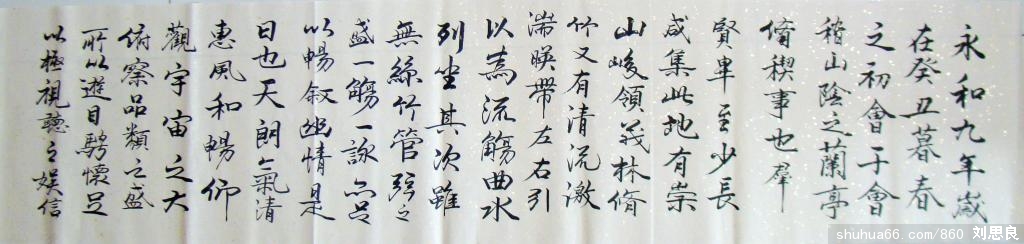 永和九年歲
在癸丑暮春
之初會于會
稽山陰之蘭亭
脩稧事也羣
賢畢至少長
咸集此地有崇
山峻領茂林脩
竹又有清流激
湍暎帶左右引
以為流觴曲水
列坐其次雖
無絲竹管弦之
盛一觴一詠亦足
以暢叙幽情是
日也天朗氣清
惠風和暢仰
觀宇宙之大
俯察品類之盛
所以遊目騁懷足
以極視聽之娱信
shuhua66.com/860 刘思良